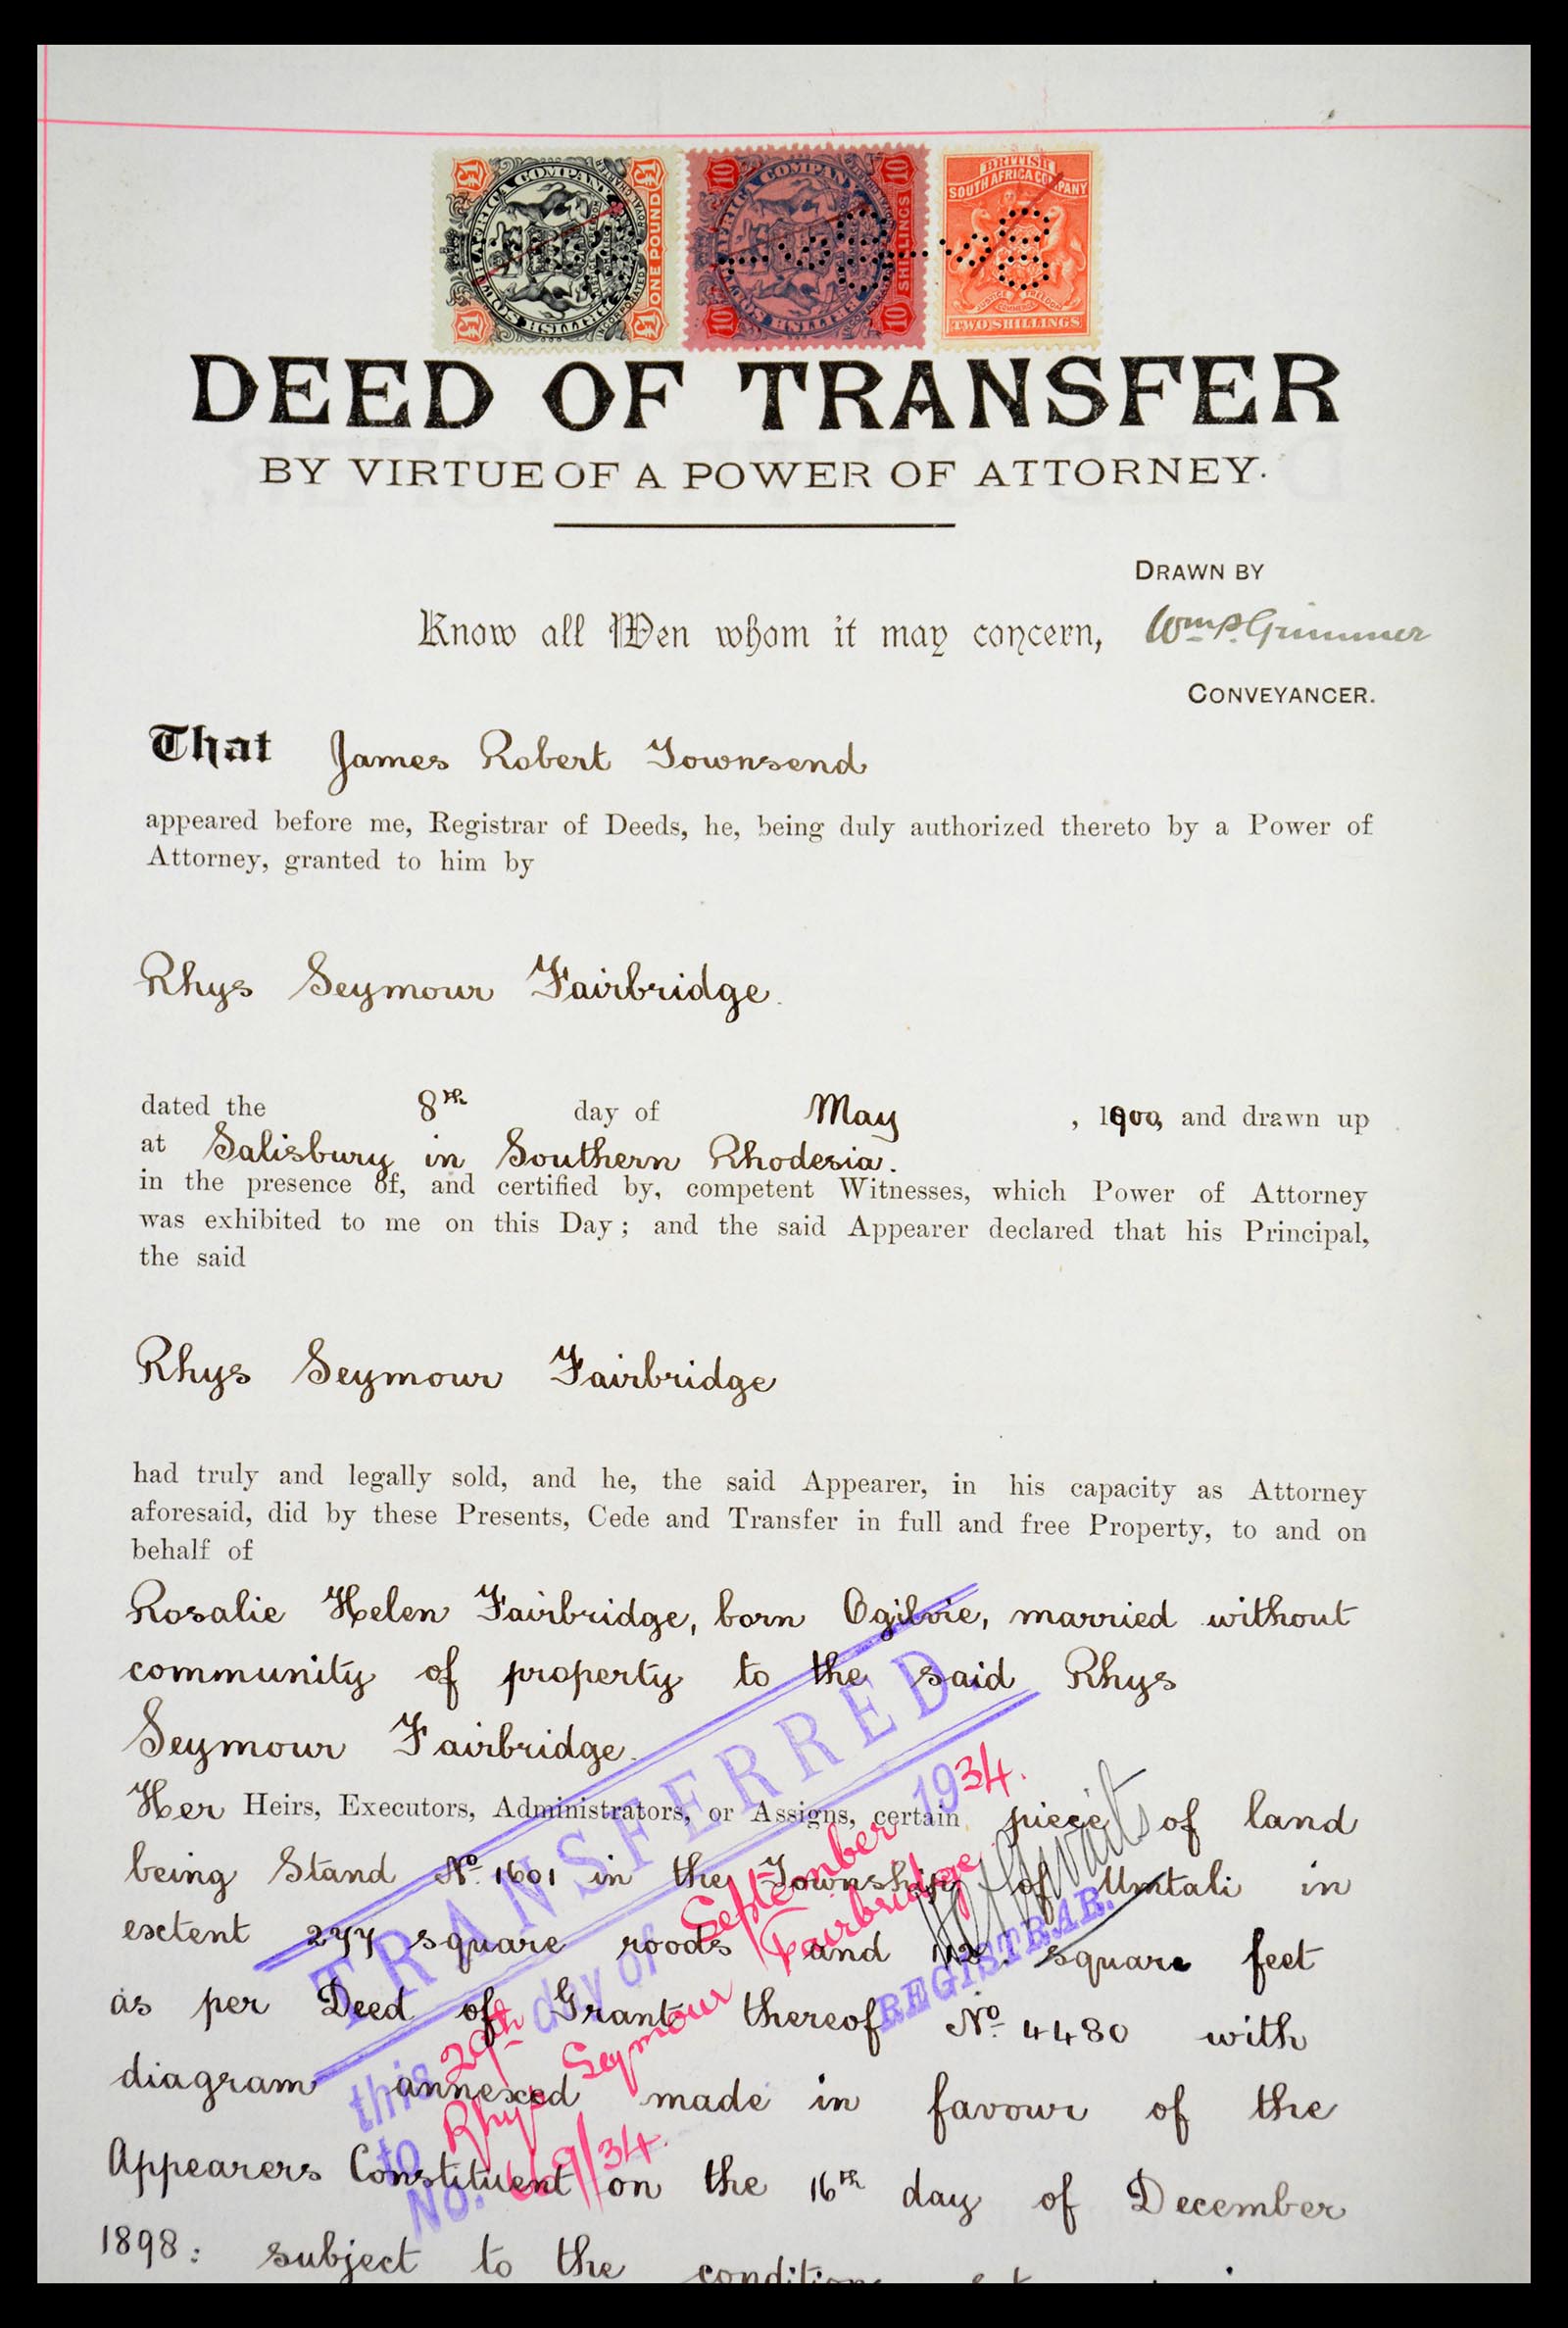 £1 £1 10 10 BRITISH
SOUTH AFRICA COMPANY
ONE POUND
SHILLINGS
£1 £1 10 10 JUSTICE COMMERCE FREEDOM
TWO SHILLINGS
DEED OF TRANSFER
BY VIRTUE OF A POWER OF ATTORNEY.
DRAWN BY
Know all Men whom it may concern, Wm. P. Grimmer
CONVEYANCER.
That James Robert Townsend
appeared before me, Registrar of Deeds, he, being duly authorized thereto by a Power of
Attorney, granted to him by
Rhys Seymour Fairbridge.
dated the 8th day of May , 1900, and drawn up
at Salisbury in Southern Rhodesia.
in the presence of, and certified by, competent Witnesses, which Power of Attorney
was exhibited to me on this Day; and the said Appearer declared that his Principal,
the said
Rhys Seymour Fairbridge
had truly and legally sold, and he, the said Appearer, in his capacity as Attorney
aforesaid, did by these Presents, Cede and Transfer in full and free Property, to and on
behalf of
Rosalie Helen Fairbridge, born Ogilvie, married without
community of property to the said Rhys
Seymour Fairbridge.
Her Heirs, Executors, Administrators, or Assigns, certain piece of land
being Stand No. 1601 in the Township of Umtali in
extent 277 square roods and 112 square feet
as per Deed of Grant thereof No. 4480 with
diagram annexed made in favour of the
Appearers Constituent on the 16th day of December
1898: subject to the conditions
TRANSFERRED.
this 29th day of September 1934.
to Rhys Seymour Fairbridge
No. 669/34.
REGISTRAR.